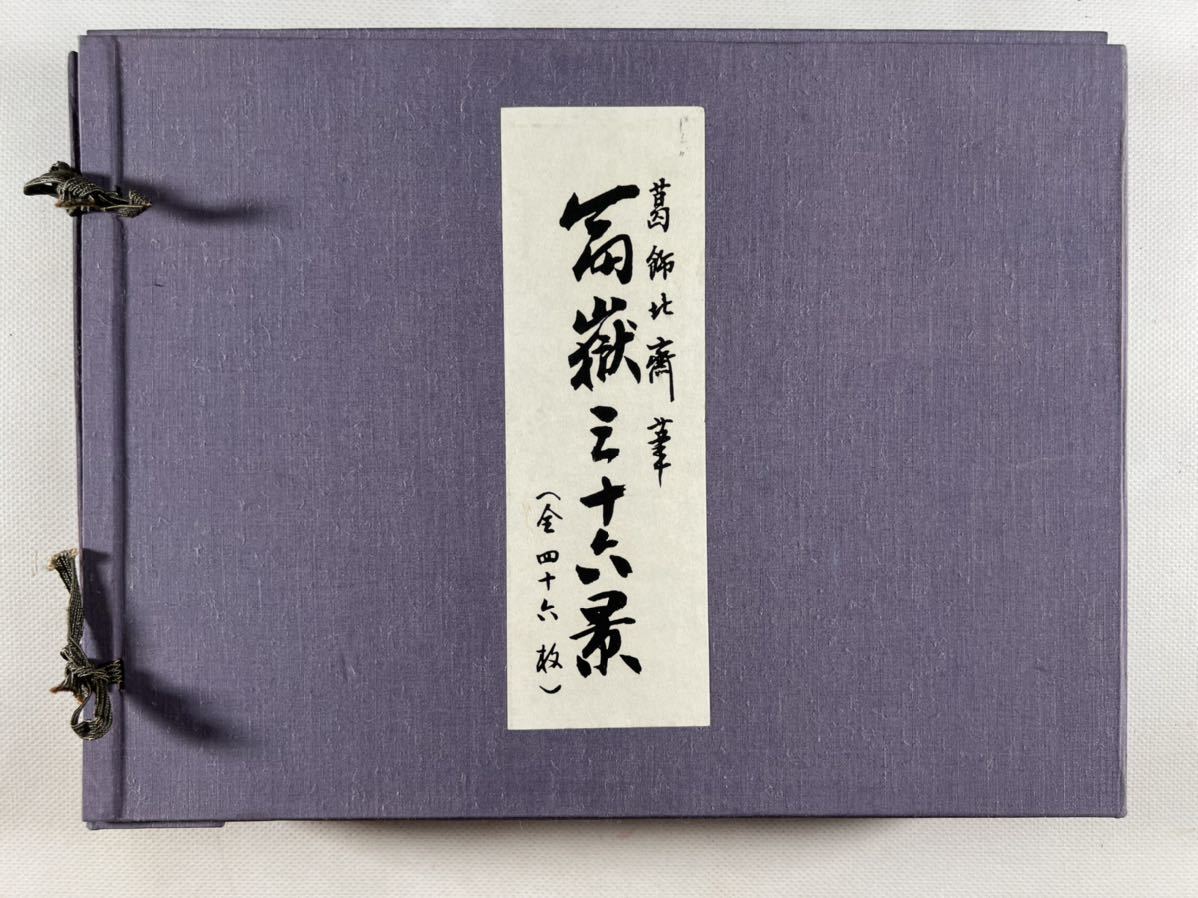 葛飾北齋筆
富嶽三十六景
(全四十六枚)